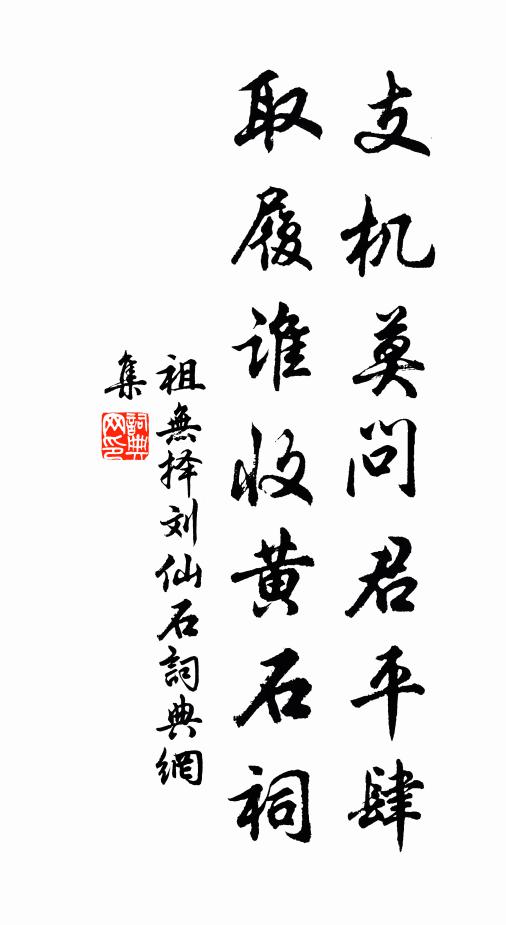 支机莫问君平肆
取履谁收黄石祠
祖無择刘仙石詞典網
集
詞典网印